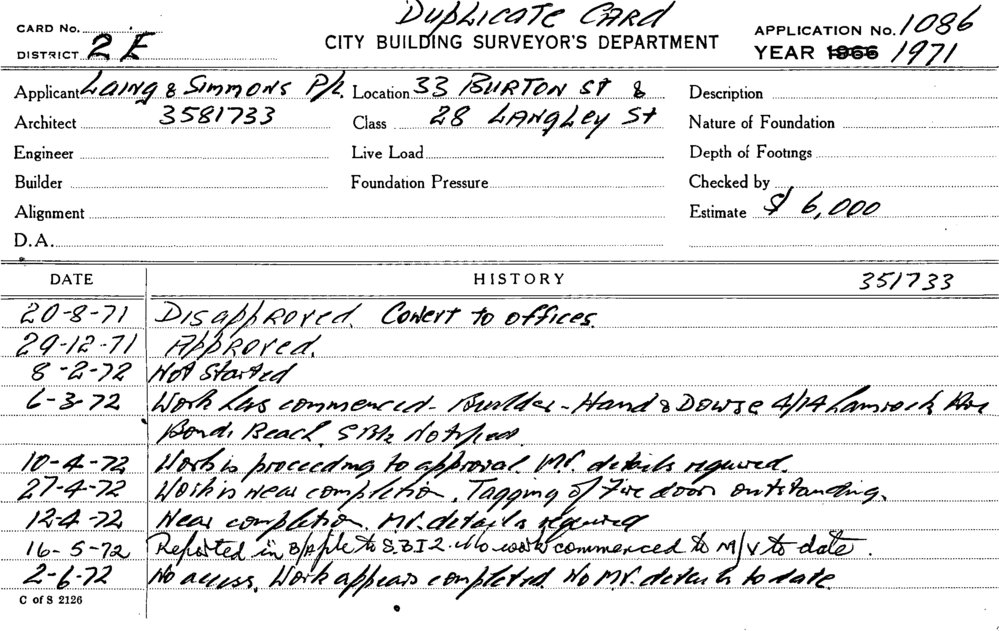 DUPLICATE CARD
CARD No. APPLICATION No. 1086
DISTRICT 2E CITY BUILDING SURVEYOR'S DEPARTMENT YEAR 1966 1971
Applicant LAING & SIMMONS P/L. Location 33 BURTON ST & Description
Architect 3581733 Class 28 LANGLEY St Nature of Foundation
Engineer Live Load Depth of Footings
Builder Foundation Pressure Checked by
Alignment Estimate $ 6,000
D.A.
DATE HISTORY 351733
20-8-71 Disapproved. Convert to offices.
29-12-71 Approved.
8-2-72 Not Started
6-3-72 Work has commenced - Builder - Hand & Dowse 4/14 Lamrock Ave
Bondi Beach. Notified
10-4-72 Work is proceeding to approval. MV. details required.
27-4-72 Work is near completion. Tagging of Fire door outstanding.
12-4-72 Near completion. MV. details required
16-5-72 Reported in to S.B.I 2. No work commenced to M/V to date.
2-6-72 No access. Work appears completed. No MV. details to date.
C of S 2126